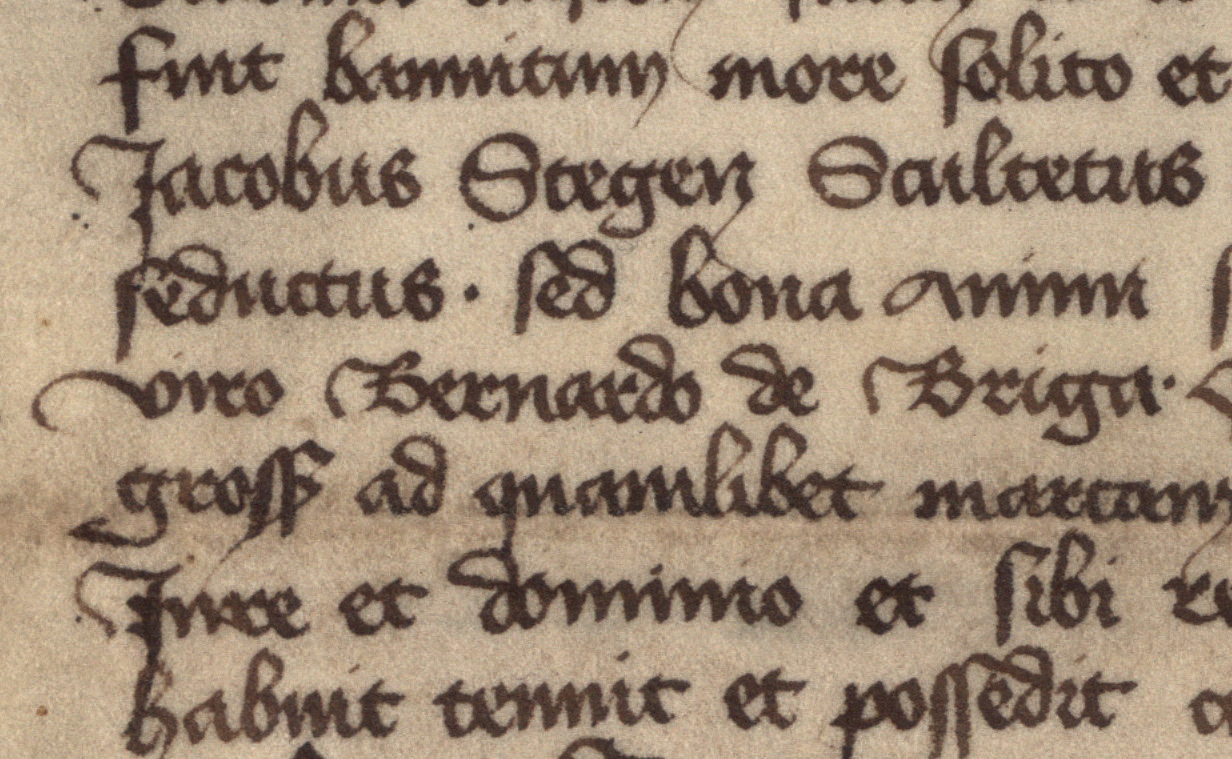 fuit bannitum more solito et
Jacobus Stegen Scultetus
seductus. sed bona animi
viro Bernardo de Briga.
gross ad quamlibet marcam
Jure et dominio et sibi re
habuit tenuit et possedit